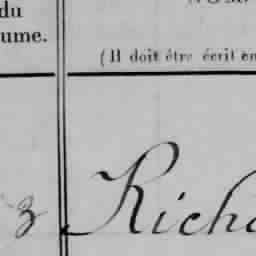 du
ume.
(Il doit être écrit en
3 Richa